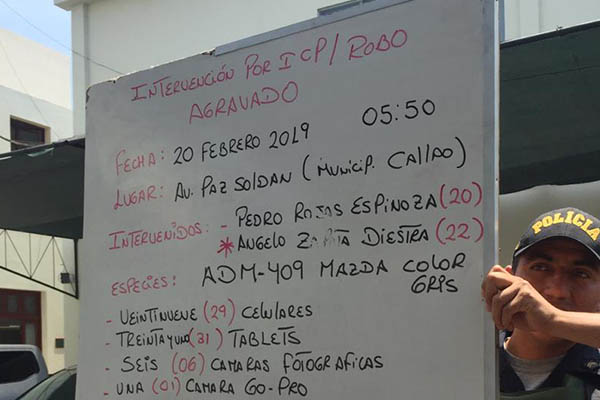 INTERVENCIÓN POR ICP/ROBO
AGRAVADO
FECHA: 20 FEBRERO 2019 05:50
LUGAR: AV. PAZ SOLDAN (MUNICIP. CALLAO)
INTERVENIDOS: - PEDRO ROJAS ESPINOZA (20)
* ANGELO DIESTRA (22)
ESPECIES: ADM-409 MAZDA COLOR
GRIS
- VEINTINUEVE (29) CELULARES
- TREINTAYUNO (31) TABLETS
- SEIS (06) CAMARAS FOTOGRAFICAS
- UNA (01) CAMARA GO-PRO
POLICIA